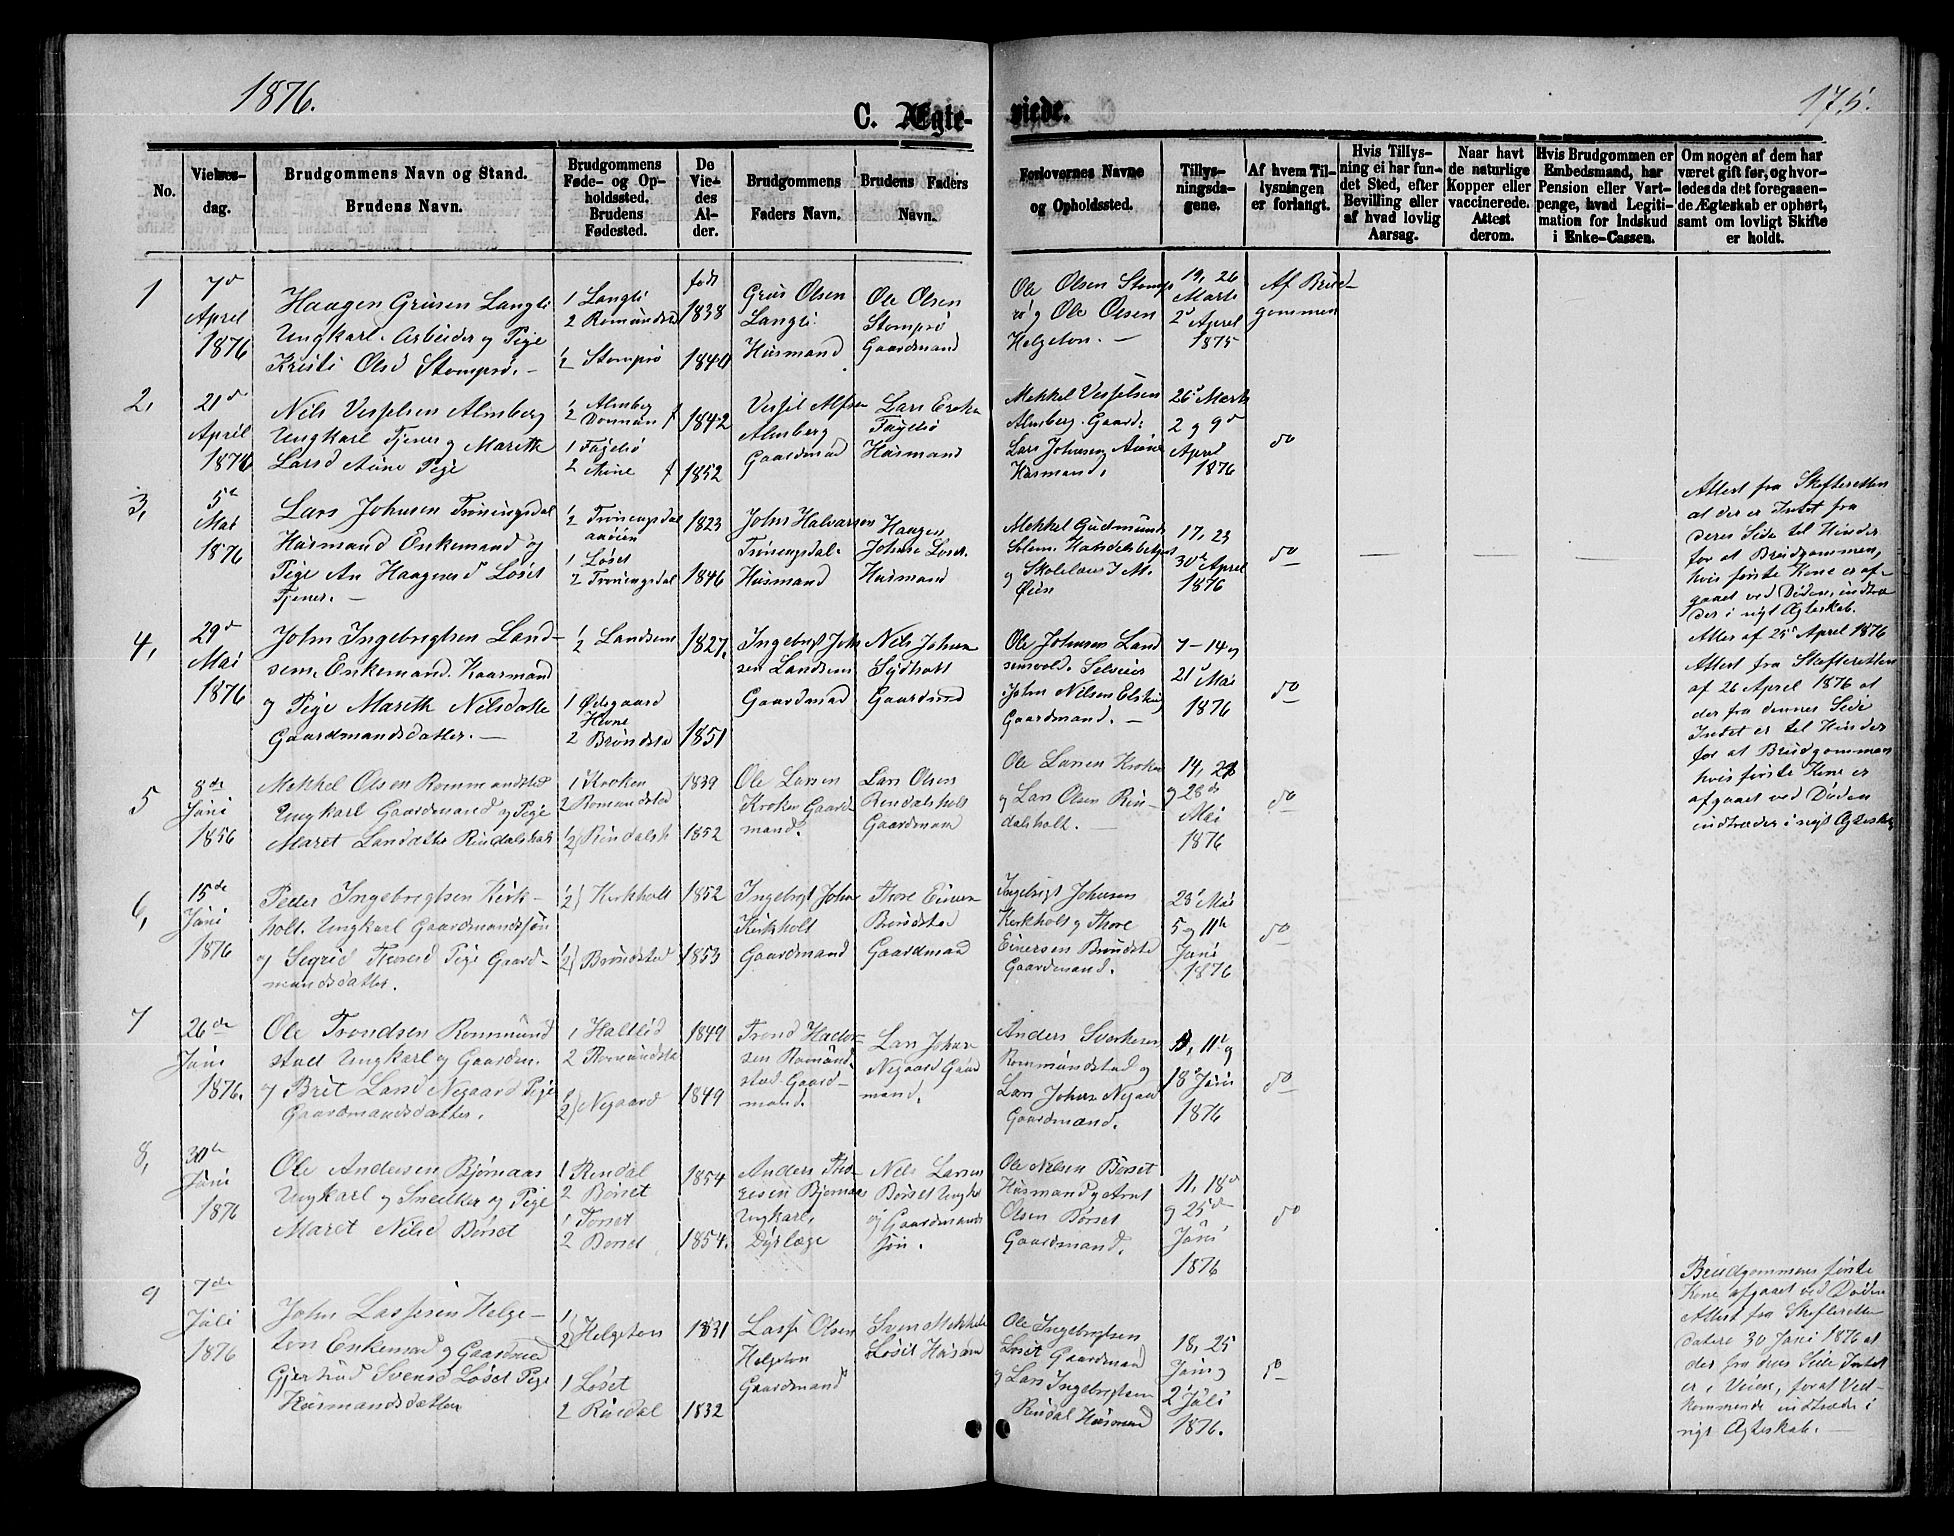 1876.
175.
C. Ægte-
viede.
No.
Vielses-
dag.
Brudgommens Navn og Stand.
Brudens Navn.
Brudgommens
Føde- og Op-
holdssted.
Brudens
Fødested.
De
Vie-
des
Al-
der.
Brudgommens
Faders Navn.
Brudens Faders
Navn.
Forlovernes Navne
og Opholdssted.
Tillys-
ningsda-
gene.
Af hvem Til-
lysningen
er forlangt.
Hvis Tillys-
ning ei har fun-
det Sted, efter
Bevilling eller
af hvad lovlig
Aarsag.
Naar havt
de naturlige
Kopper eller
vaccinerede.
Attest
derom.
Hvis Brudgommen er
Embedsmand, har
Pension eller Vart-
penge, hvad Legiti-
mation for Indskud
i Enke-Cassen.
Om nogen af dem har
været gift før, og hvor-
ledes da det foregaaen-
de Ægteskab er ophørt,
samt om lovligt Skifte
er holdt.
1
7d
April
1876
Haagen Grusen Langli
Ungkarl. Arbeider og Pige
Kristi Olsd Stomprø. —
1 Langli
2 Romundsta
1/2 Stomprø
født
1838
1840
Grus Olsen
Langli
Husmand
Ole Olsen
Stomprø
Gaardmand
Ole Olsen Stomp
rø og Ole Olsen
Helgeton. —
19, 26
Marts
2d April
1875
Af Brud-
gommen
2,
21d
April
1876
Nils Vesselsen Almberg
Ungkarl Tjener og Marith
Larsd Aune Pige
1/2 Almberg
1 Fageliø
2 Aune
1842
1852
Almberg
Gaardmad
Husmand
Mekkel Vesselsen
Almberg. Gaard:
Lars Johnsen Aune
Husmand.
26d Marts
2 og 9d
April
1876
do
3,
5te
Mai
1876
Lars Johnsen Trøningsdal
Husmand Enkemand og
Pige An Haagensd Løset
Tjener. —
1/2 Trøningsdal
1 Løset
2 Trøningsdal
1823
1846
John Halvorsen
Trøningsdal
Husmand
Haagen
Johnse Løset
Husmand
Mekkel Gudmunds
Solem Handelsbetjen
og Skolelærer J M.
Øien
17, 23
30te April
1876
do
Attest fra Skifteretten
at der er Intet fra
deres Side til Hinder
for at Brudgommen,
hvis første Kone er af-
gaaet ved Døden, indtræ
der i nyt Ægteskab.
Attes af 25de April 1876
4,
29d
Mai
1876
John Ingebrigtsen Land-
sem, Enkemand. Kaarmand
og Pige Marith Nilsdatte
Gaardmandsdatter. —
1/2 Landsem
1 Ødegaard
2 Brøndsta
1827.
1851
Ingebrigt John
sen Landsem
Gaardmad
Nils Johnsn
Sydhalt
Gaardmand
Ole Johnsen Land
semsvold. Selveier
John Nilsen Elshu
Gaardmand. —
7 – 14 og
21d Mai
1876
do
Attest fra Skifteretten
af 26 April 1876 at
der fra dennes Side
Intet er til Hinder
for at Brudgommen
hvis første Kone er
afgaaet ved Døden
indtræder i nyt Ægteskab
5
8de
Juni
1856
Mekkel Olsen Rommundstad
Ungkarl Gaardmand og Pige
Maret Larsdatte Rindalsholt
1 Kroken
2 Romundstad
1/2 Rindalsh
1839
1852
Ole Larsen
Kroken Gaard
mand.
Lars Olsen
Rindalsholt
Gaardmann
Ole Larsen Kroken
og Lars Olsen Rin-
dalsholt. —
14, 21
og 28de
Mai
1876
do
6,
15de
Juni
1876
Peder Ingebrigtsen Kirk-
holt. Ungkarl Gaardmandssøn
og Segrid Thoresd Pige Gaard-
mandsdatter.
1/2 Kirkholt
1/2 Brøndsted
1852
1853
Ingebrigt John
Kirkholt
Gaardmand
Thore Einer
Brøndsted
Gaardmand
Ingebrigt Johnsen
Kirkholt og Thore
Einersen Brøndste
Gaardmand.
28d Mai
5 og 11te
Juni
1876
do
7
26de
Juni
1876.
Ole Trondsen Rommund
stad Ungkarl og Gaardm.
og Brit Larsd Negaard Pige
Gaardmandsdatter.
1 Haltlid
2 Romundsta
1/2 Negaard
1849
1849
Trond Hador-
sen Romund
stad Gaard-
mand.
Lars Johnsn
Negaard Gaard
mand.
Anders Sverkesen
Rommundstad og
Lars Johnsn Negaard
Gaardmand.
11te og
18de Juni
1876
do
8,
30te
Juni
1876
Ole Andersen Bjørnaas
Ungkarl og Snedker og Pige
Maret Nilsd Børset
1 Rindal
2 Børset
1 Torset
2 Børset
1854
1854.
Anders Tho-
resen Bjørnaa
Ungkarl,
Dyrlæge
Nils Larsen
Børset Ungka
og Gaardmands
søn.
Ole Nilsen Børset
Husmand og Arnt
Olsen Børset
Gaardmand.
11, 18d
og 25de
Juni
1876
do
9
7de
Juli
1876
John Lassesen Helge-
ton Enkemad og Gaardmd
Gjertrud Svensd Løset Pige
Husmandsdatter
1/2 Helgeton
1 Løset
2 Rindal
1831
1832
Lasse Olsen
Helgeton
Gaardmand
Sven Mekkels
Løset Husma
Ole Ingebrigtsen
Løset Gaardmand
og Lars Ingebrigtsen
Rindal Husmand
18, 25
Juni og
2d Juli
1876.
do
Brudgommens første
Kone afgaaet ved Døden
Attest fra Skifteretten
datere 30 Juni 1876 at
der fra dens Side Intet
er i Veien, for at Ved-
kommende indtræde i
nyt Ægteskab. —